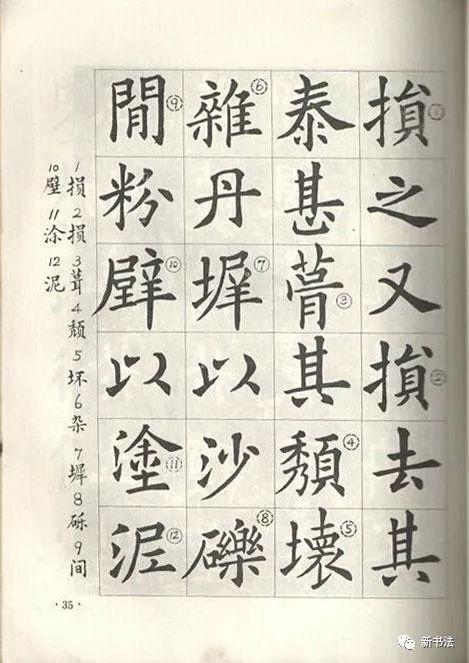 損①之又損②去其
泰甚葺③其頹④壞⑤
雜⑥丹墀⑦以沙礫⑧
間⑨粉壁⑩以塗⑪泥⑫
1损2损3葺4颓5坏6杂7墀8砾9间
10壁11涂12泥
·35·
新书法